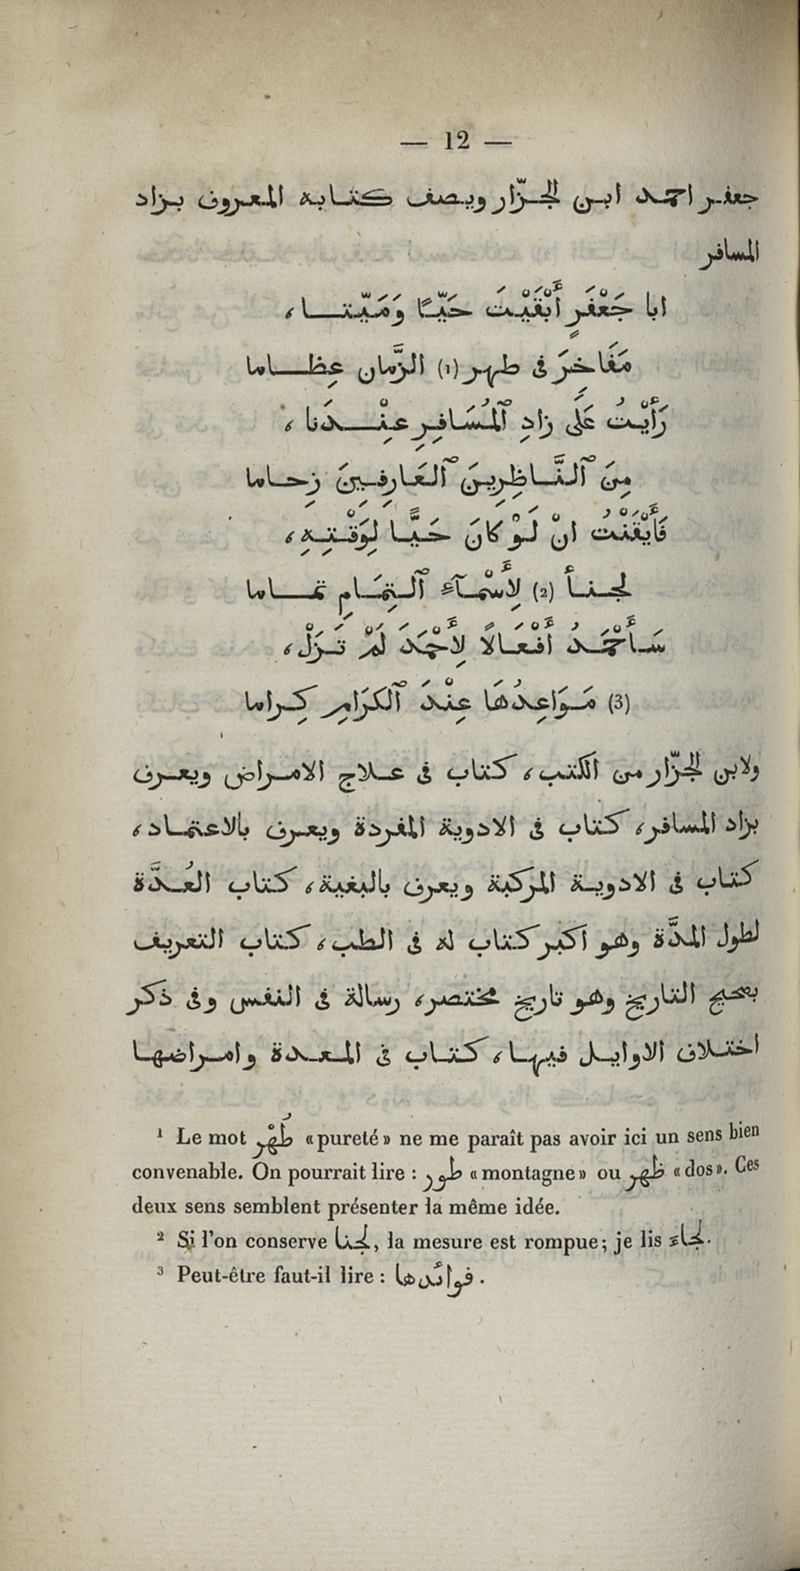 — 12 —
جعفر احمد ابن الجزّار ويصف كتابه المعروف بزاد
المسافر
ابا جَعْفَرٍ أَبْقَيْتَ حَيًّا وَمَيّتا ،
مَفَاخِرَ فى طهر (١) الزَّمان عِظاما
رَأَيْتُ عَلَى زادِ ٱلْمُسَافِرِ عِنْدَنا ،
مِنَ ٱلنَّاظِرِينَ ٱلْعَارِفِينَ زِحاما
فَأَيْقَنْتُ انْ لَوْ كَانَ حَيًّا لِوَقْتِهِ ،
لجنأ (٢) لِأَسْمَآءِ ٱلتِمَامِ تماما
سَأَحْمَدُ أَفْعَالاً لِأَحْمَدَ لَمْ تَزَلْ ،
(3) مَوَاعِدُهَا عِنْدَ ٱلْكرَامِ كِراما
ولابن الجزّار من الكتب ، كتاب فى علاج الامراض ويعرف
بزاد المسافر ، كتاب فى الادوية المفردة ويعرف بالاعتماد ،
كتاب فى الادوية المركبة ويعرف بالبغية ، كتاب العُدَّة
لطول المدَّة وهو أكبر كتاب له فى الطب ، كتاب التعريف
بصحيح التاريخ وهو تاريخ مختصر ، رسالة فى النفس وفى ذكر
اختلاف الاوايل فيها ، كتاب فى المعدة وامراضها
¹ Le mot طُهْر «pureté» ne me paraît pas avoir ici un sens bien
convenable. On pourrait lire : طور «montagne» ou ظهر «dos». Ces
deux sens semblent présenter la même idée.
² Si l'on conserve لجنا, la mesure est rompue; je lis لجاء.
³ Peut-être faut-il lire : فوائدها.